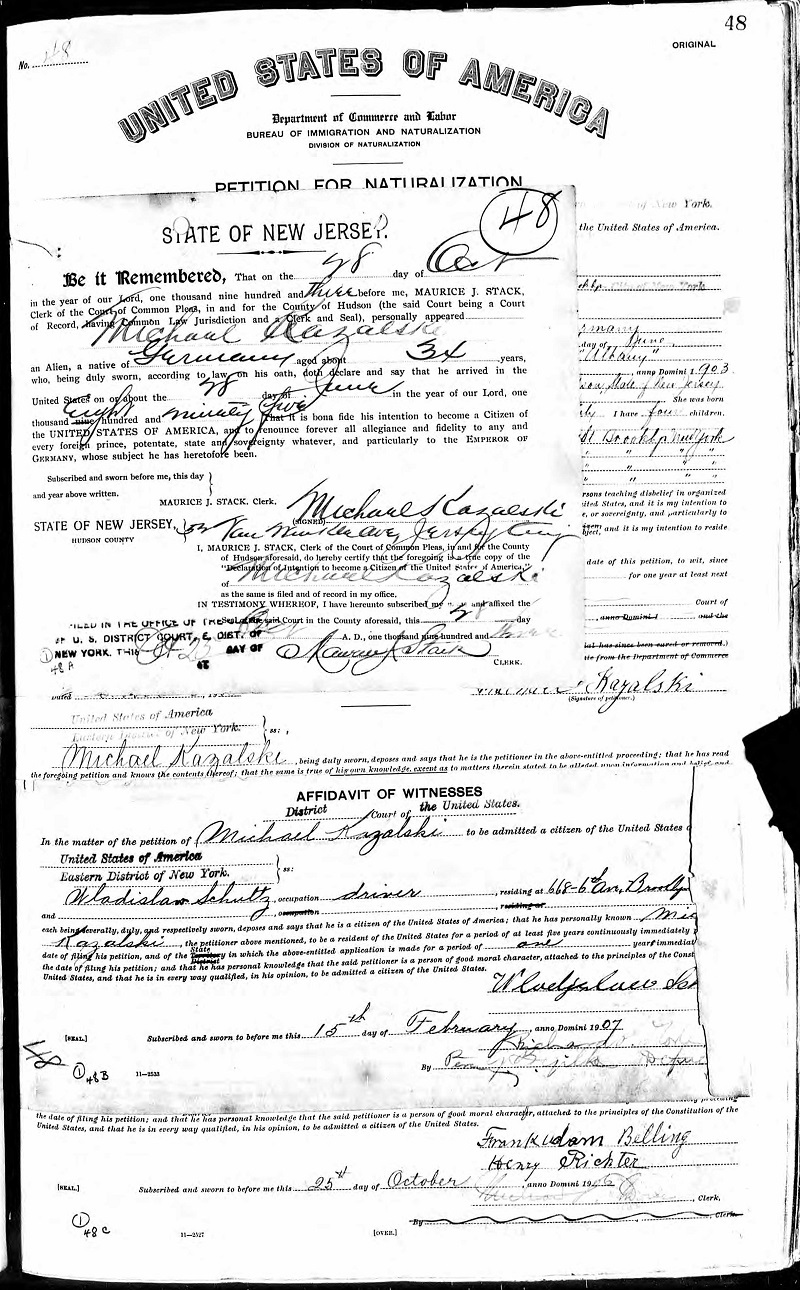 48
ORIGINAL
No. 48
UNITED STATES OF AMERICA
Department of Commerce and Labor
BUREAU OF IMMIGRATION AND NATURALIZATION
DIVISION OF NATURALIZATION
PETITION FOR NATURALIZATION
48
of New York.
STATE OF NEW JERSEY.
the United States of America.
Be it Remembered, That on the 28 day of Oct
in the year of our Lord, one thousand nine hundred and three before me, MAURICE J. STACK,
Clerk of the Court of Common Pleas, in and for the County of Hudson (the said Court being a Court
of Record, having Common Law Jurisdiction and a Clerk and Seal), personally appeared
Michael Kazalski
an Alien, a native of Germany aged about 34 years,
who, being duly sworn, according to law, on his oath, doth declare and say that he arrived in the
United States on or about the 28 day of June in the year of our Lord, one
thousand nine hundred and eight ninety five That it is bona fide his intention to become a Citizen of
the UNITED STATES OF AMERICA, and to renounce forever all allegiance and fidelity to any and
every foreign prince, potentate, state and sovereignty whatever, and particularly to the EMPEROR OF
GERMANY, whose subject he has heretofore been.
Subscribed and sworn before me, this day
and year above written.
MAURICE J. STACK, Clerk.
Michael Kazalski
(SIGNED)
STATE OF NEW JERSEY,
HUDSON COUNTY
Van Winkle Ave, Jersey City
I, MAURICE J. STACK, Clerk of the Court of Common Pleas, in and for the County
of Hudson aforesaid, do hereby certify that the foregoing is a true copy of the
"Declaration of Intention to become a Citizen of the United States of America,"
of Michael Kazalski
as the same is filed and of record in my office.
IN TESTIMONY WHEREOF, I have hereunto subscribed my and affixed the
Seal of the said Court in the County aforesaid, this 28 day
of Oct A. D., one thousand nine hundred and three
Maurice J Stack
CLERK.
FILED IN THE OFFICE OF THE
U. S. DISTRICT COURT, E. DIST. OF
NEW YORK. THIS 25 DAY OF
1
48 A
ermany
day of June
"Albany"
, anno Domini 1903
State of New Jersey
She was born
I have four children.
St Brooklyn New York
" " " "
" " " "
rsons teaching disbelief in organized
ited States, and it is my intention to
e, or sovereignty, and particularly to
bject, and it is my intention to reside
date of this petition, to wit, since
for one year at least next
Court of
, anno Domini 1 and the
has since been cured or removed.)
te from the Department of Commerce
Kazalski
(Signature of petitioner.)
United States of America
Eastern District of New York.
ss:
Michael Kazalski, being duly sworn, deposes and says that he is the petitioner in the above-entitled proceeding; that he has read
the foregoing petition and knows the contents thereof; that the same is true of his own knowledge, except as to matters therein stated to be alleged upon information and belief, and
AFFIDAVIT OF WITNESSES
District Court of the United States.
In the matter of the petition of Michael Kazalski to be admitted a citizen of the United States
United States of America
Eastern District of New York.
ss:
Wladislaw Schultz, occupation driver, residing at 668-6th Av, Brooklyn
and , occupation , residing at
each being severally, duly, and respectively sworn, deposes and says that he is a citizen of the United States of America; that he has personally known Mic
Kazalski, the petitioner above mentioned, to be a resident of the United States for a period of at least five years continuously immediately
date of filing his petition, and of the State Territory District in which the above-entitled application is made for a period of one years immediat
the date of filing his petition; and that he has personal knowledge that the said petitioner is a person of good moral character, attached to the principles of the Const
United States, and that he is in every way qualified, in his opinion, to be admitted a citizen of the United States.
[SEAL.]
Subscribed and sworn to before me this 15th day of February, anno Domini 1907
By
48
1
48 B
11—2533
the date of filing his petition; and that he has personal knowledge that the said petitioner is a person of good moral character, attached to the principles of the Constitution of the
United States, and that he is in every way qualified, in his opinion, to be admitted a citizen of the United States.
Frank Adam Belling
Henry Richter
[SEAL.]
Subscribed and sworn to before me this 25th day of October, anno Domini 1906
, Clerk,
By , Clerk.
1
48 C
11—2527
[OVER.]